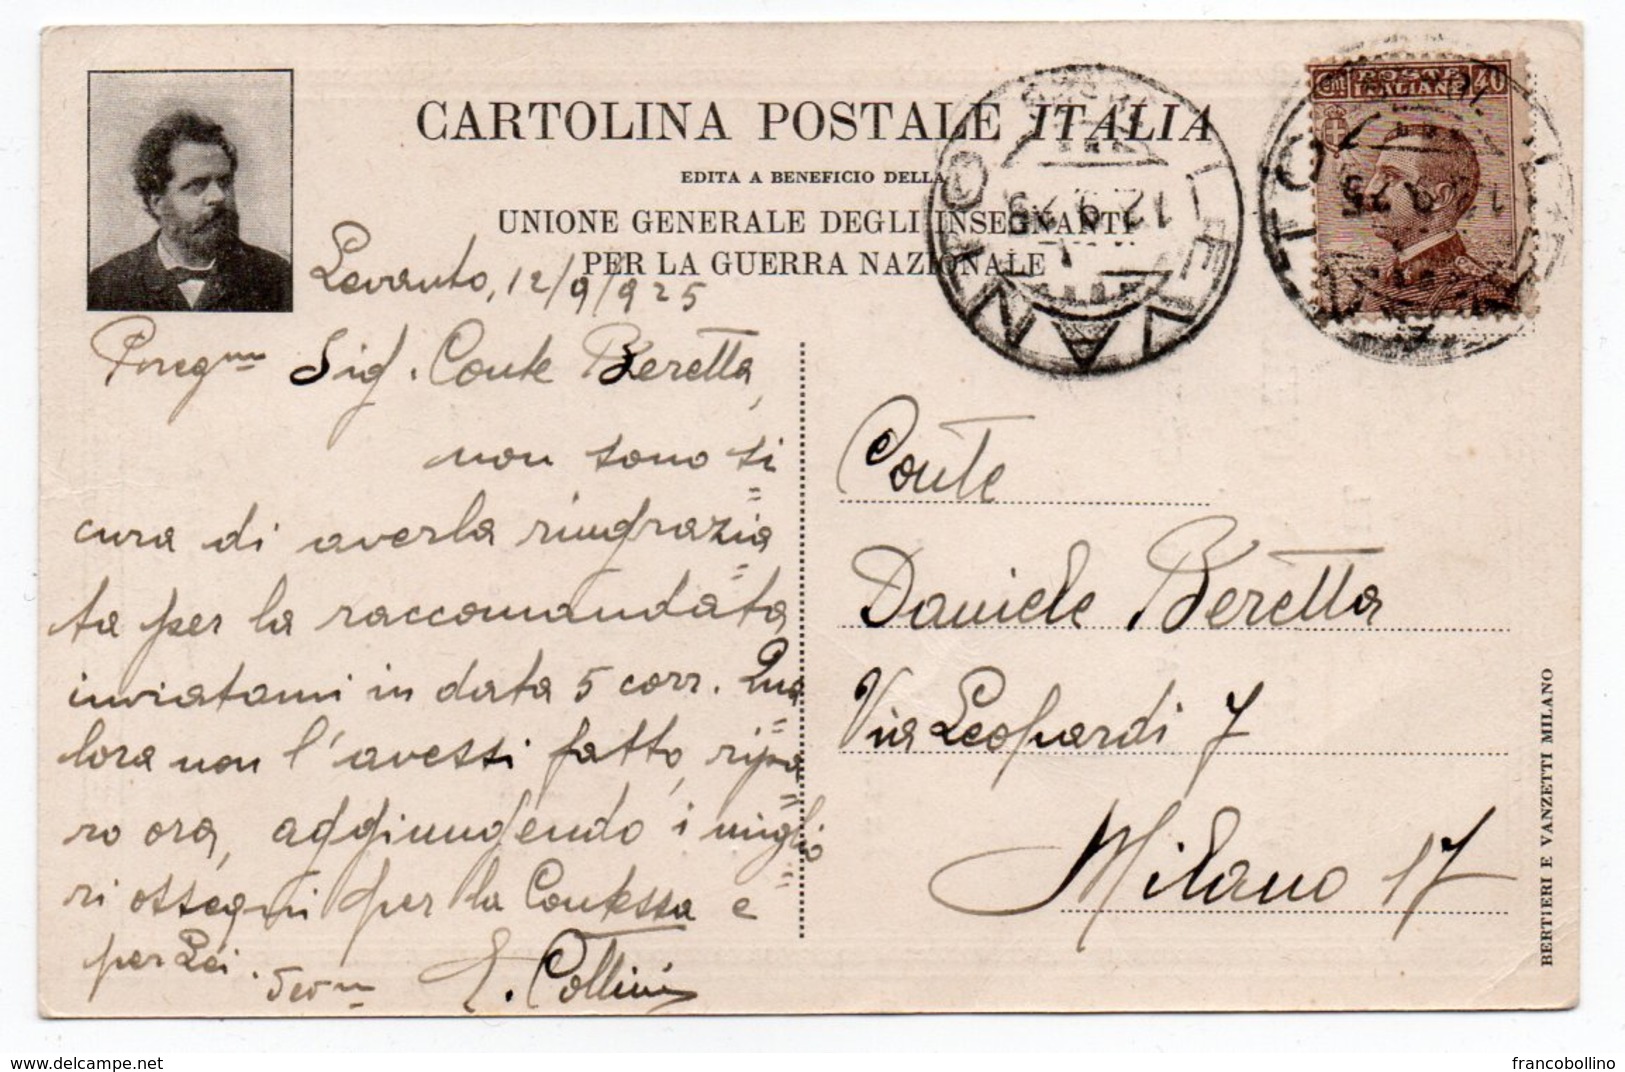 CARTOLINA POSTALE ITALIA
EDITA A BENEFICIO DELLA
UNIONE GENERALE DEGLI INSEGNANTI
PER LA GUERRA NAZIONALE
Levanto, 12/9/925
Sig. Conte Beretta,
non sono si=
cura di averla ringrazia=
ta per la raccomandata
inviatami in data 5 corr. Qua=
lora non l'avessi fatto, ripa=
ro ora, aggiungendo i miglio=
ri ossequi per la Contessa e
per Lei.
E. Collini
Conte
Daniele Beretta
Via Leopardi 7
Milano 17
LEVANTO
12.9.25
POSTE ITALIANE
40
BERTIERI E VANZETTI MILANO
www.delcampe.net
francobollino